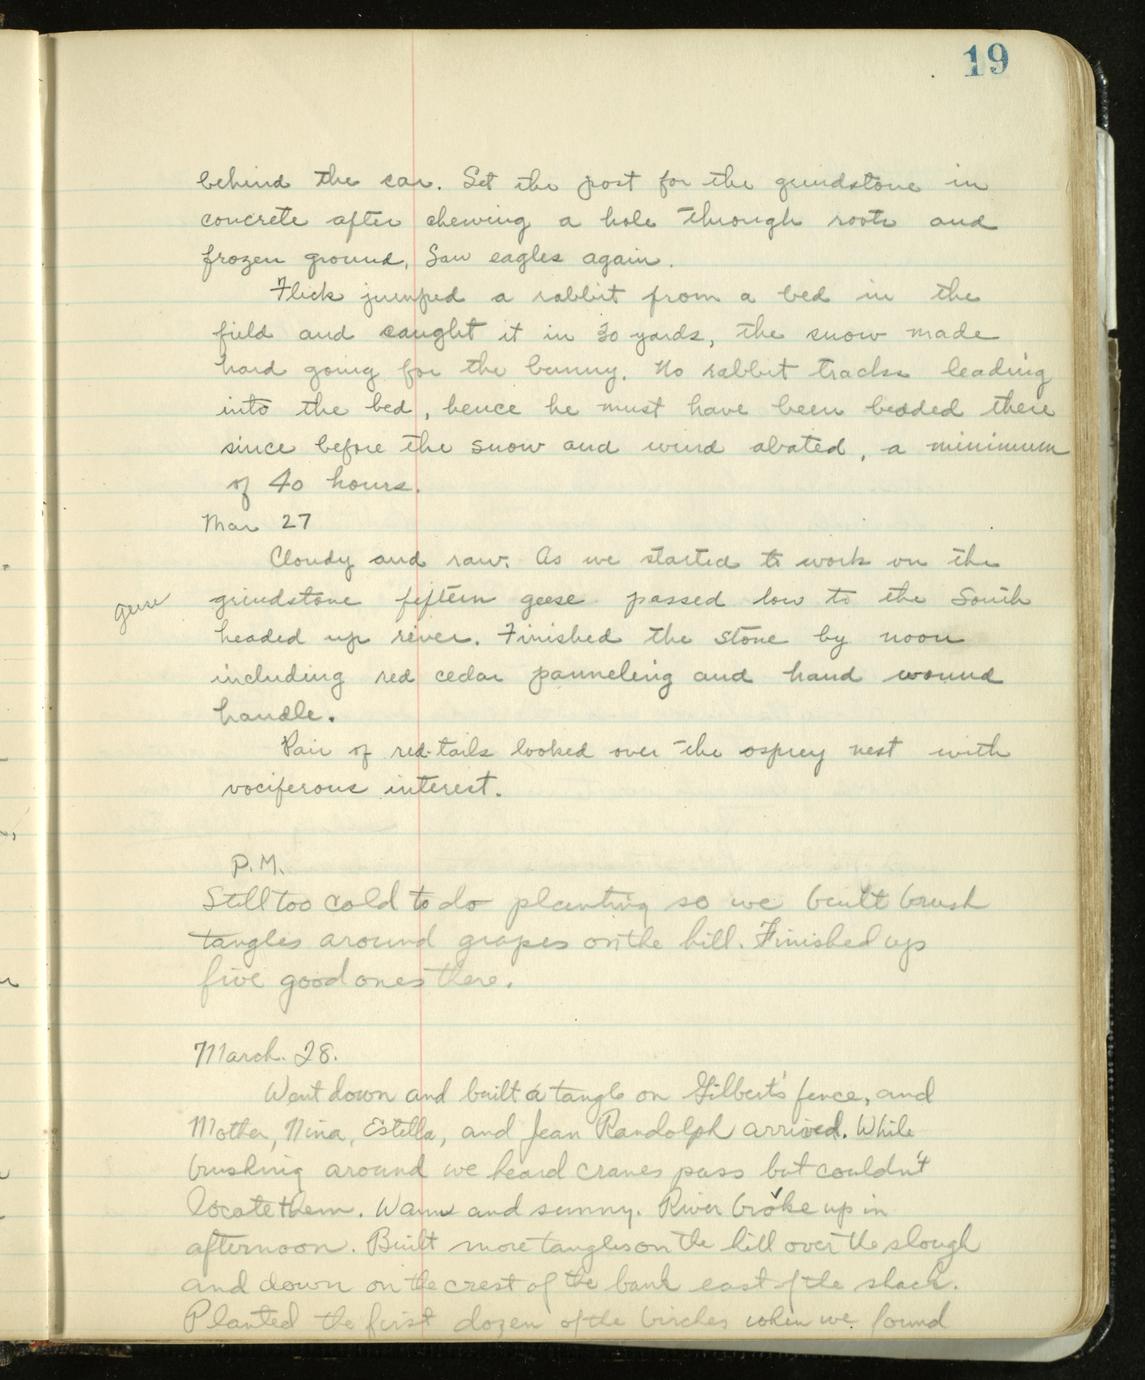 19
behind the car. Set the post for the grindstone in
concrete after chewing a hole through roots and
frozen ground. Saw eagles again.
Flick jumped a rabbit from a bed in the
field and caught it in 30 yards, the snow made
hard going for the bunny. No rabbit tracks leading
into the bed, hence he must have been bedded there
since before the snow and wind abated, a minimum
of 40 hours.
Mar 27
Cloudy and raw. As we started to work on the
geese
grindstone fifteen geese passed low to the South
headed up river. Finished the stone by noon
including red cedar panneling and hand wound
handle.
Pair of red-tails looked over the osprey nest with
vociferous interest.
P.M.
Still too cold to do planting so we built brush
tangles around grapes on the hill. Finished up
five good ones there.
March. 28.
Went down and built a tangle on Gilbert's fence, and
Mother, Nina, Estella, and Jean Randolph arrived. While
brushing around we heard cranes pass but couldn't
locate them. Warm and sunny. River broke up in
afternoon. Built more tangles on the hill over the slough
and down on the crest of the bank east of the shack.
Planted the first dozen of the birches when we found